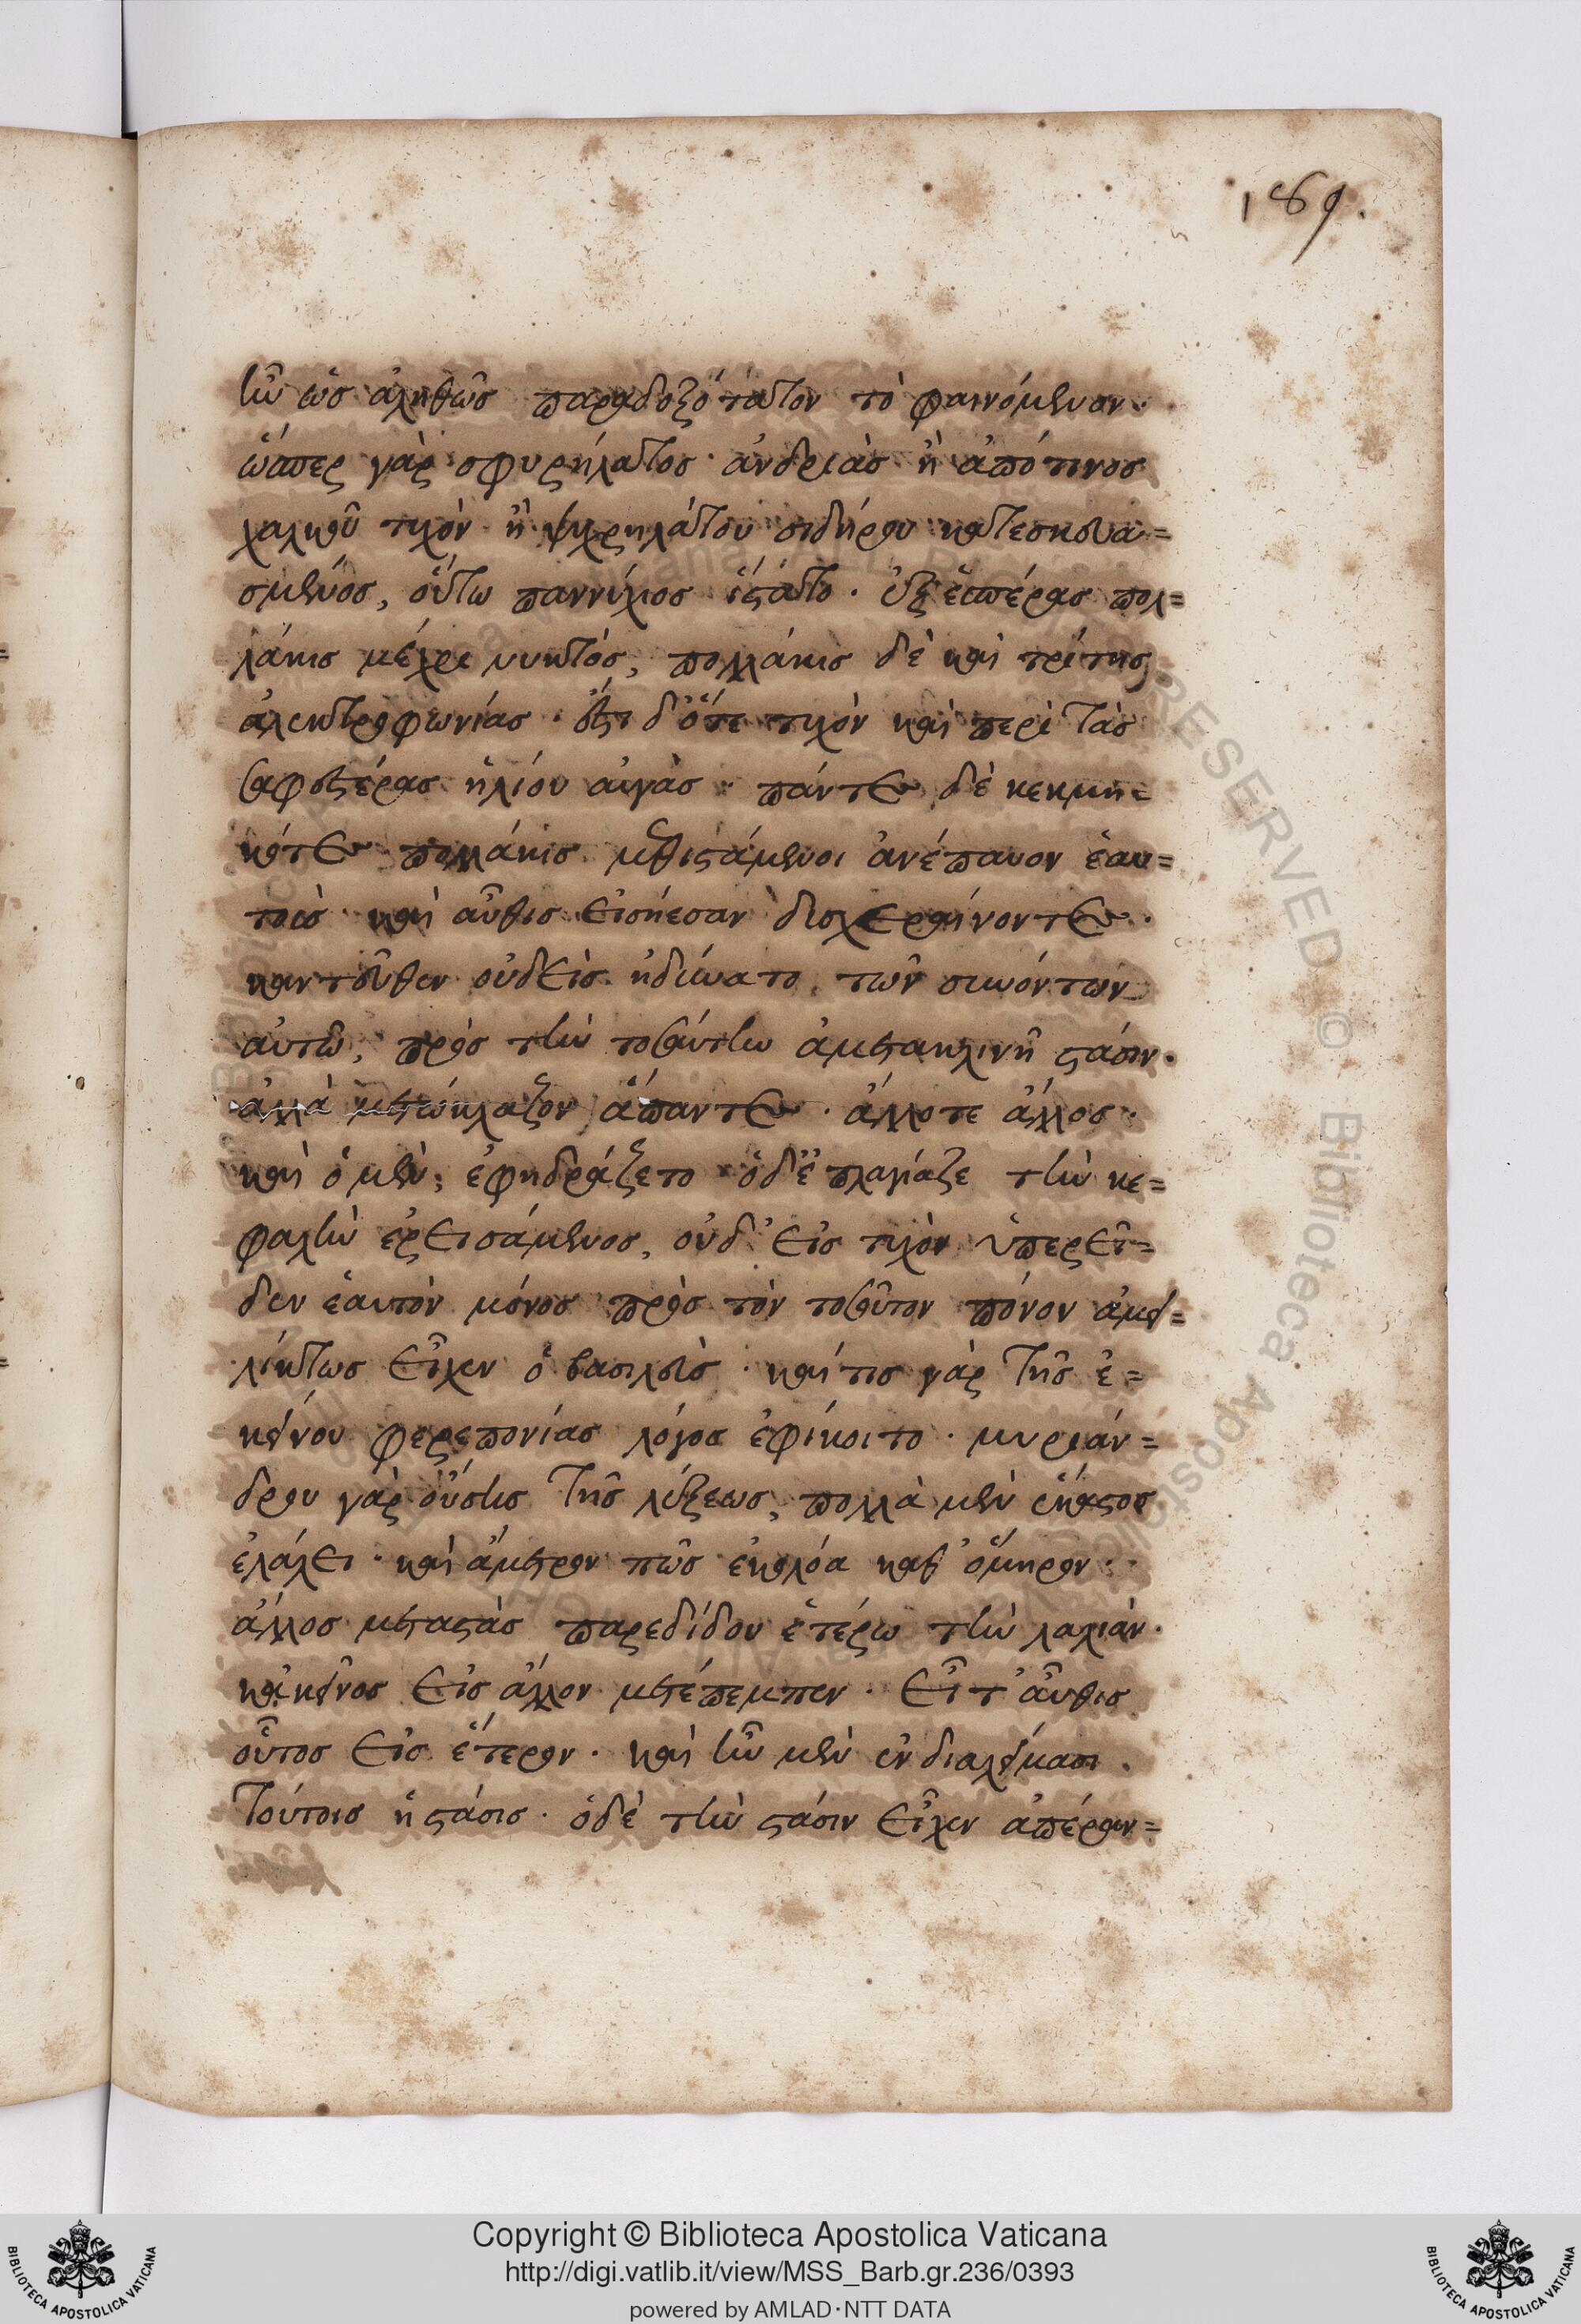 189.
ἦν ὡς ἀληθῶς παραδοξότατον τὸ φαινόμενον·
ὥσπερ γὰρ σφυρήλατος ἀνδριὰς ἢ ἀπό τινος
χαλκοῦ τυχὸν ἢ ψυχρηλάτου σιδήρου κατεσκευα=
σμένος, οὕτω παννύχιος ἵστατο· ἐξ ἑσπέρας πολ=
λάκις μέχρι νυκτός, πολλάκις δὲ καὶ τρίτης
ἀλεκτροφωνίας· ἔστι δ' ὅτε τυχὸν καὶ περὶ τὰς
σαφεστέρας ἡλίου αὐγάς· πάντες δὲ κεκμη=
κότες πολλάκις μεθιστάμενοι ἀνέπαυον ἑαυ=
τοὺς καὶ αὖθις εἰσῄεσαν δυσχεραίνοντες·
κἀντεῦθεν οὐδεὶς ἠδύνατο τῶν συνόντων
αὐτῷ, πρὸς τὴν τοσαύτην ἀμετακλινῆ στάσιν.
ἀλλὰ μετώκλαζον ἅπαντες· ἄλλοτε ἄλλος·
καὶ ὁ μὲν, ἐφηδράζετο· ὁ δ' ἐπλαγίαζε τὴν κε=
φαλὴν ἐρεισάμενος, οὐδ' εἰς τυχὸν ὑπερεῖ=
δεν ἑαυτὸν μόνος πρὸς τὸν τοσοῦτον πόνον ἀμει=
λίκτως εἶχεν ὁ βασιλεύς· καὶ τίς γὰρ τῆς ἐ=
κείνου φερεπονίας λόγος ἐφίκοιτο· μυριάν=
δρου γὰρ οὔσης τῆς λέξεως, πολλὰ μὲν ἕκαστος
ἐλάλει· καὶ ἄμετρον πῶς ἐκολῴα καθ' ὅμηρον·
ἄλλος μεταστὰς παρεδίδου ἑτέρῳ τὴν λαλιάν·
κἀκεῖνος εἰς ἄλλον μετέπεμπεν· εἶτ' αὖθις
οὗτος εἰς ἕτερον· καὶ ἦν μὲν ἐν διαλείμασι
τούτοις ἡ στάσις· ὁ δὲ τὴν στάσιν εἶχεν ἀπέραν=
Copyright © Biblioteca Apostolica Vaticana
http://digi.vatlib.it/view/MSS_Barb.gr.236/0393
powered by AMLAD·NTT DATA